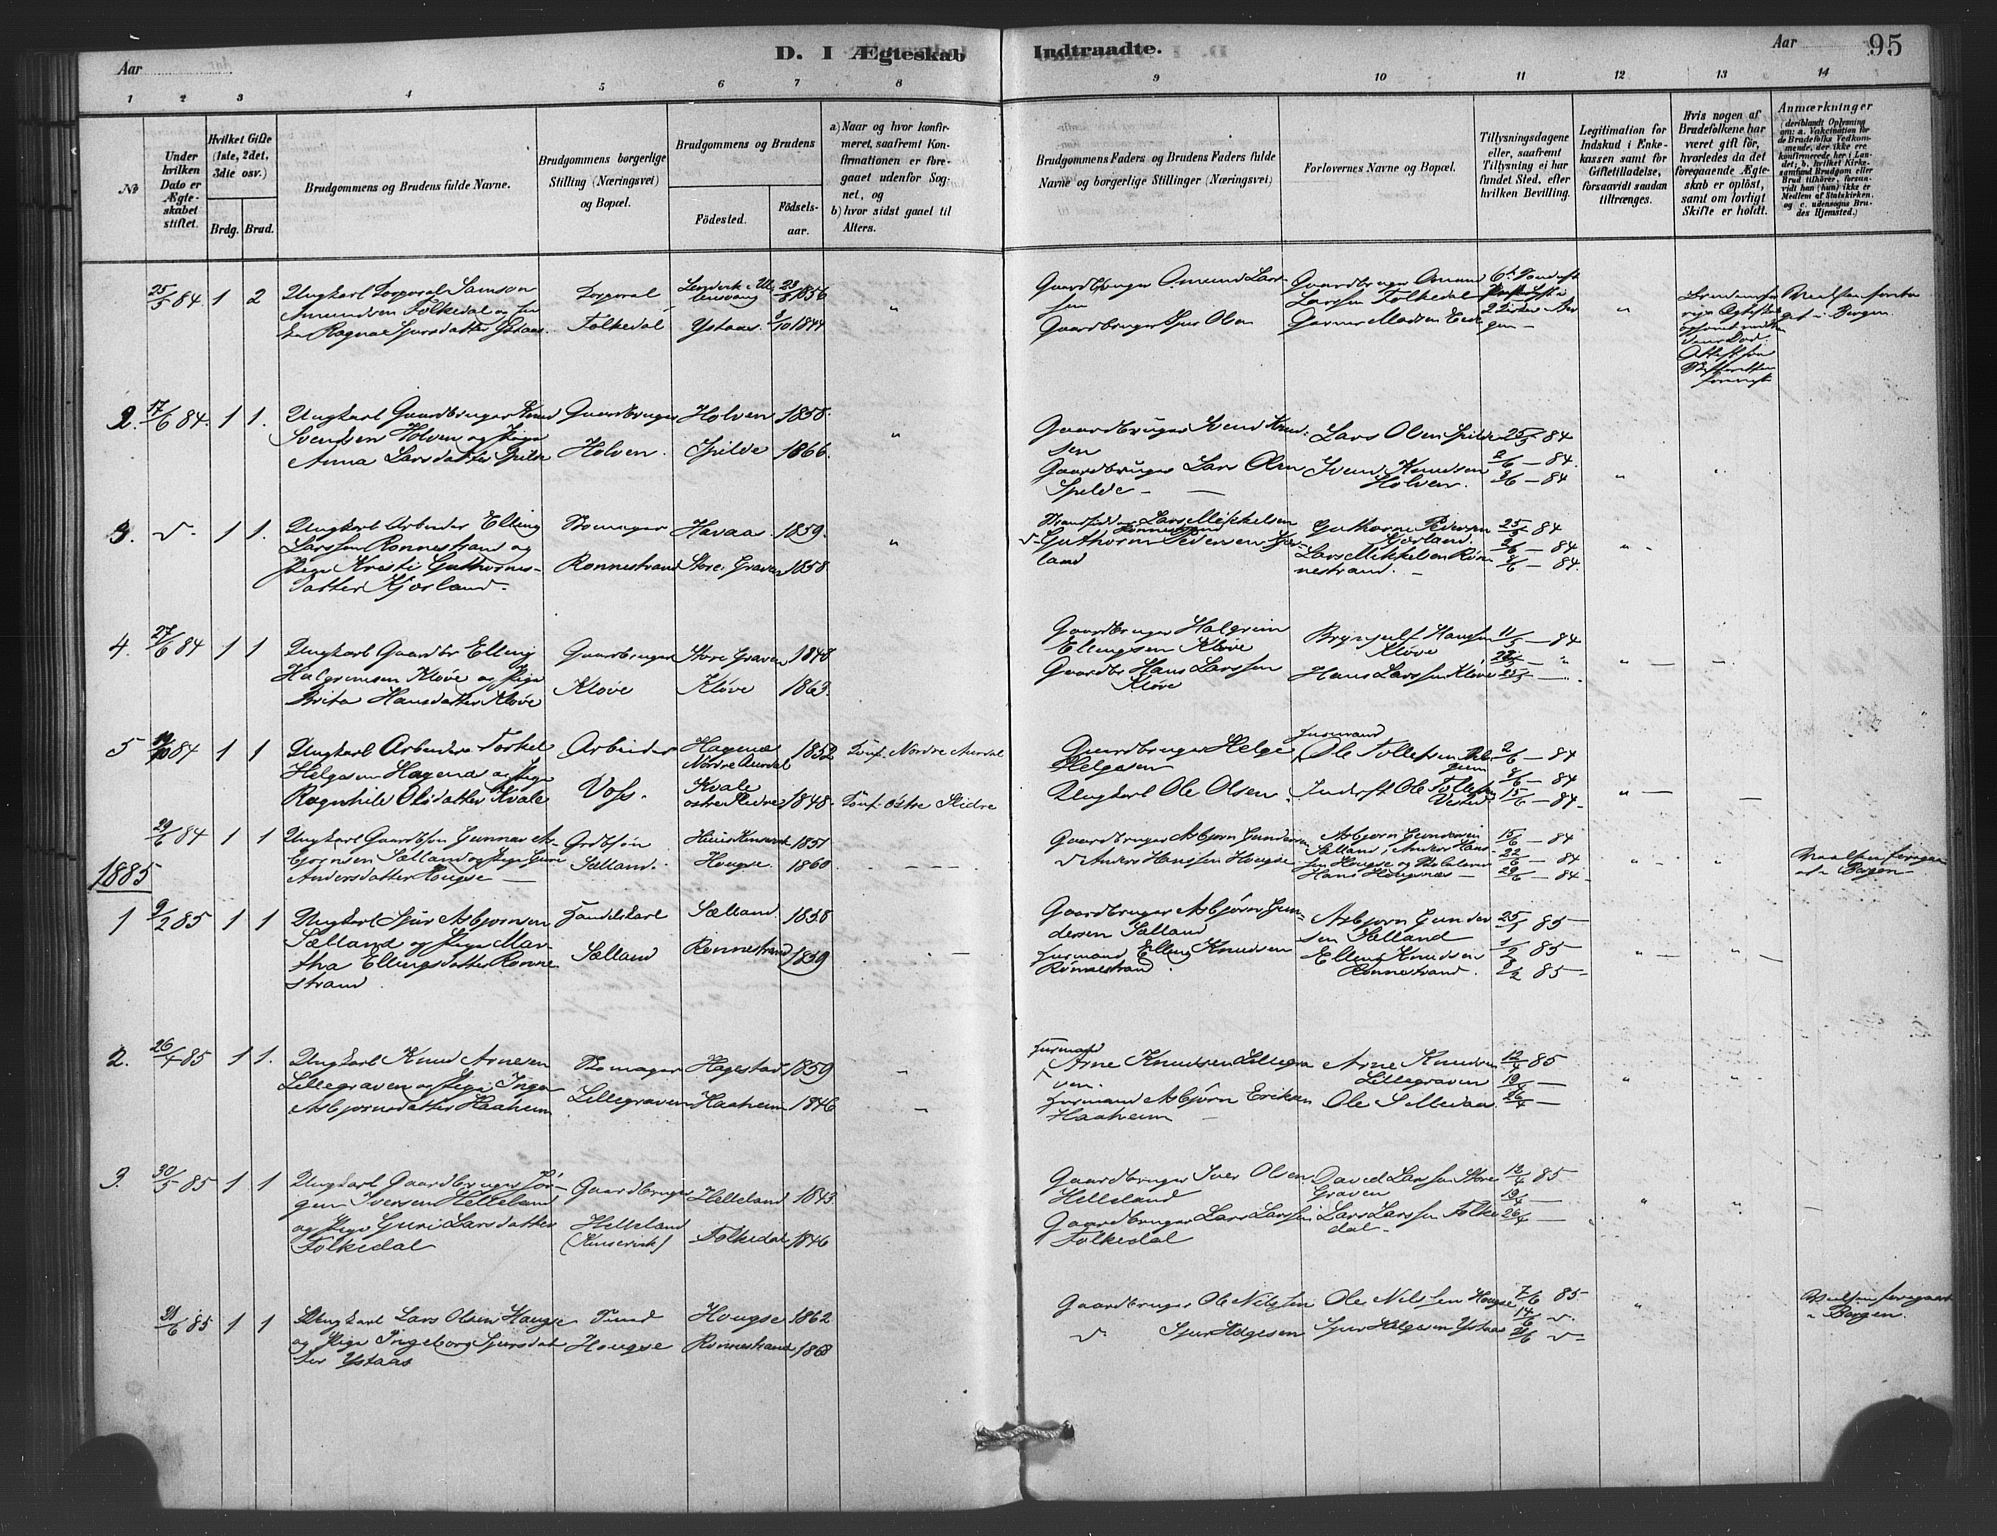 D. I Ægteskab Indtraadte.
Aar
Aar 95
1 2 3 4 5 6 7 8 9 10 11 12 13 14
No
Under hvilken Dato er Ægteskabet stiftet.
Hvilket Gifte (1ste, 2det, 3die osv.)
Brdg. Brud.
Brudgommens og Brudens fulde Navne.
Brudgommens borgerlige Stilling (Næringsvei) og Bopæl.
Brudgommens og Brudens
Födested.
Födsels-aar.
a) Naar og hvor konfirmeret, saafremt Konfirmationen er foregaaet udenfor Sognet, og
b) hvor sidst gaaet til Alters.
Brudgommens Faders og Brudens Faders fulde Navne og borgerlige Stillinger (Næringsvei)
Forlovernes Navne og Bopæl.
Tillysningsdagene eller, saafremt Tillysning ei har fundet Sted, efter hvilken Bevilling.
Legitimation for Indskud i Enkekassen samt for Giftetilladelse, forsaavidt saadan tiltrænges.
Hvis nogen af Brudefolkene har været gift før, hvorledes da det foregaaende Ægteskab er oplöst, samt om lovligt Skifte er holdt.
Anmærkninger
(deriblandt Oplysning om: a. Vakcination for de Brudefolks Vedkommende, der ikke ere konfirmerede her i Landet; b. hvilket Kirkesamfund Brudgom eller Brud tilhörer, forsaavidt han (hun) ikke er Medlem af Statskirken, og c. udensogns Brudes Hjemsted.)
25/5 84 1 2 Ungkarl Corporal Samson
Amundsen Folkedal og
Ragna Sjursdatter Ystaas
Corporal
Folkedal
Ystaas
1856
1844
Gaardbruger Omund Larssen
Gaardbruger Sjur Olsen
Gaardbruger Omund
Larssen Folkedal
2. 17/6 84. 1 1. Ungkarl Gaardbruger Knud
Svendsen Holven og Pige
Anna Larsdatter Spilde
Gaardbruger
Holven.
Holven 1858.
Spilde 1866.
Gaardbruger Knud Knudsen
Gaardbruger Lars Olsen
Spilde
Lars Olsen Spilde
Svend Knudsen
Holven.
25/5 84
2/6 — 84.
8/6 — 84
3. v. 1 1. Ungkarl Arbeider Elling
Larssen Rønnestrand og
Pige Kristi Guthormsdatter
Kjærland.
Skomager
Rønnestrand
Havaas. 1859.
Store Graven 1858.
Lars Mikkelsen
Rønnestrand
Guthorm Pedersen Kjærland
Guthorm Pedersen
Kjærland.
Lars Mikkelsen Rønnestrand.
25/5 84
2/6 — 84
8/6 — 84.
4. 27/6 84 1 1 Ungkarl Gaardbr Elling
Halgrimsen Kløve og Pige
Brita Hansdatter Kløve
Gaardbruger
Kløve
Store Graven 1848
Kløve 1863.
Gaardbruger Halgrim
Ellingsen Kløve
Gaardbr Hans Larssen
Kløve
Brynjulf Hansen
Kløve
Hans Larssen Kløve
11/5 — 84
25/5
5 84 1 1 Ungkarl Arbeider Torkel
Helgesen Hagena og Pige
Ragnhild Olsdatter Kvale
Arbeider
Voss.
Hagena
Nordre Aurdal 1852
Kvale
østre Slidre 1848.
Conf. Nordre Aurdal
Conf. østre Slidre
Gaardbruger Helge
Helgesen
Ungkarl Ole Olsen.
Husmand
Ole Tollefsen
2/6 — 84
8/6 — 84
15/6 — 84.
29/6 84 1 1 Ungkarl Gaardbsøn Gunnar Asbjørnsen
Sælland og Pige Guri
Andersdatter Hougse
Grdbsøn
Sælland.
1857
Hougse. 1860
Gaardbruger Asbjørn Gundersen
v Anders Hanssen Hougse
Asbjørn Gundersen
Sælland, Anders Hanssen
Hougse
15/6 — 84
22/6 — 84
29/6 — 84.
Bergen
1885
1 9/2 85 1 1 Ungkarl Sjur Asbjørnsen
Sælland og Pige Martha
Ellingsdatter Rønnestrand.
Handelskarl
Sælland
Sælland. 1858
Rønnestrand 1859
Gaardbruger Asbjørn Gundersen
Sælland
Husmand Elling Knudsen
Rønnestrand.
Asbjørn Gundersen
Sælland
Elling Knudsen
Rønnestrand.
25/1 85
1/2 85
8/2 85
2. 26/4 85 1 1. Ungkarl Knud Arnesen
Lillegraven og Pige Inga
Asbjørnsdatter Haaheim
Skomager
Lillegraven
Hagestad 1859
Haaheim 1846
Husmand
Arne Knudsen Lillegraven.
Husmand Asbjørn Eriksen
Haaheim
Arne Knudsen
Lillegraven
Ole Selledaa
12/4 85
19/4 —
26/4 —
3. 30/5 85 1 1 Ungkarl Gaardbruger Jørgen
Iversen Helleland
og Pige Guri Larsdatter
Folkedal
Gaardbruger
Helleland
(Kinservik)
Helleland 1843
Folkedal 1846
Gaardbruger Iver Olsen
Helleland
Gaardbruger Lars Larssen
Folkedal
David Larssen Store
Graven
Lars Larssen Folkedal
12/4 85
19/4 —
26/4 —
21/6 85 1 1 Ungkarl Lars Olsen Hougse
og Pige Ingeborg Sjursdatter
Ystaas
Hougse
Hougse 1862
Rønnestrand 1863
Gaardbruger Ole Nilssen
v. Sjur Helgesen
Ole Nilssen Hougse
Sjur Helgesen Ystaas
7/6 85
14/6 v.
21/6 v.
Bergen.